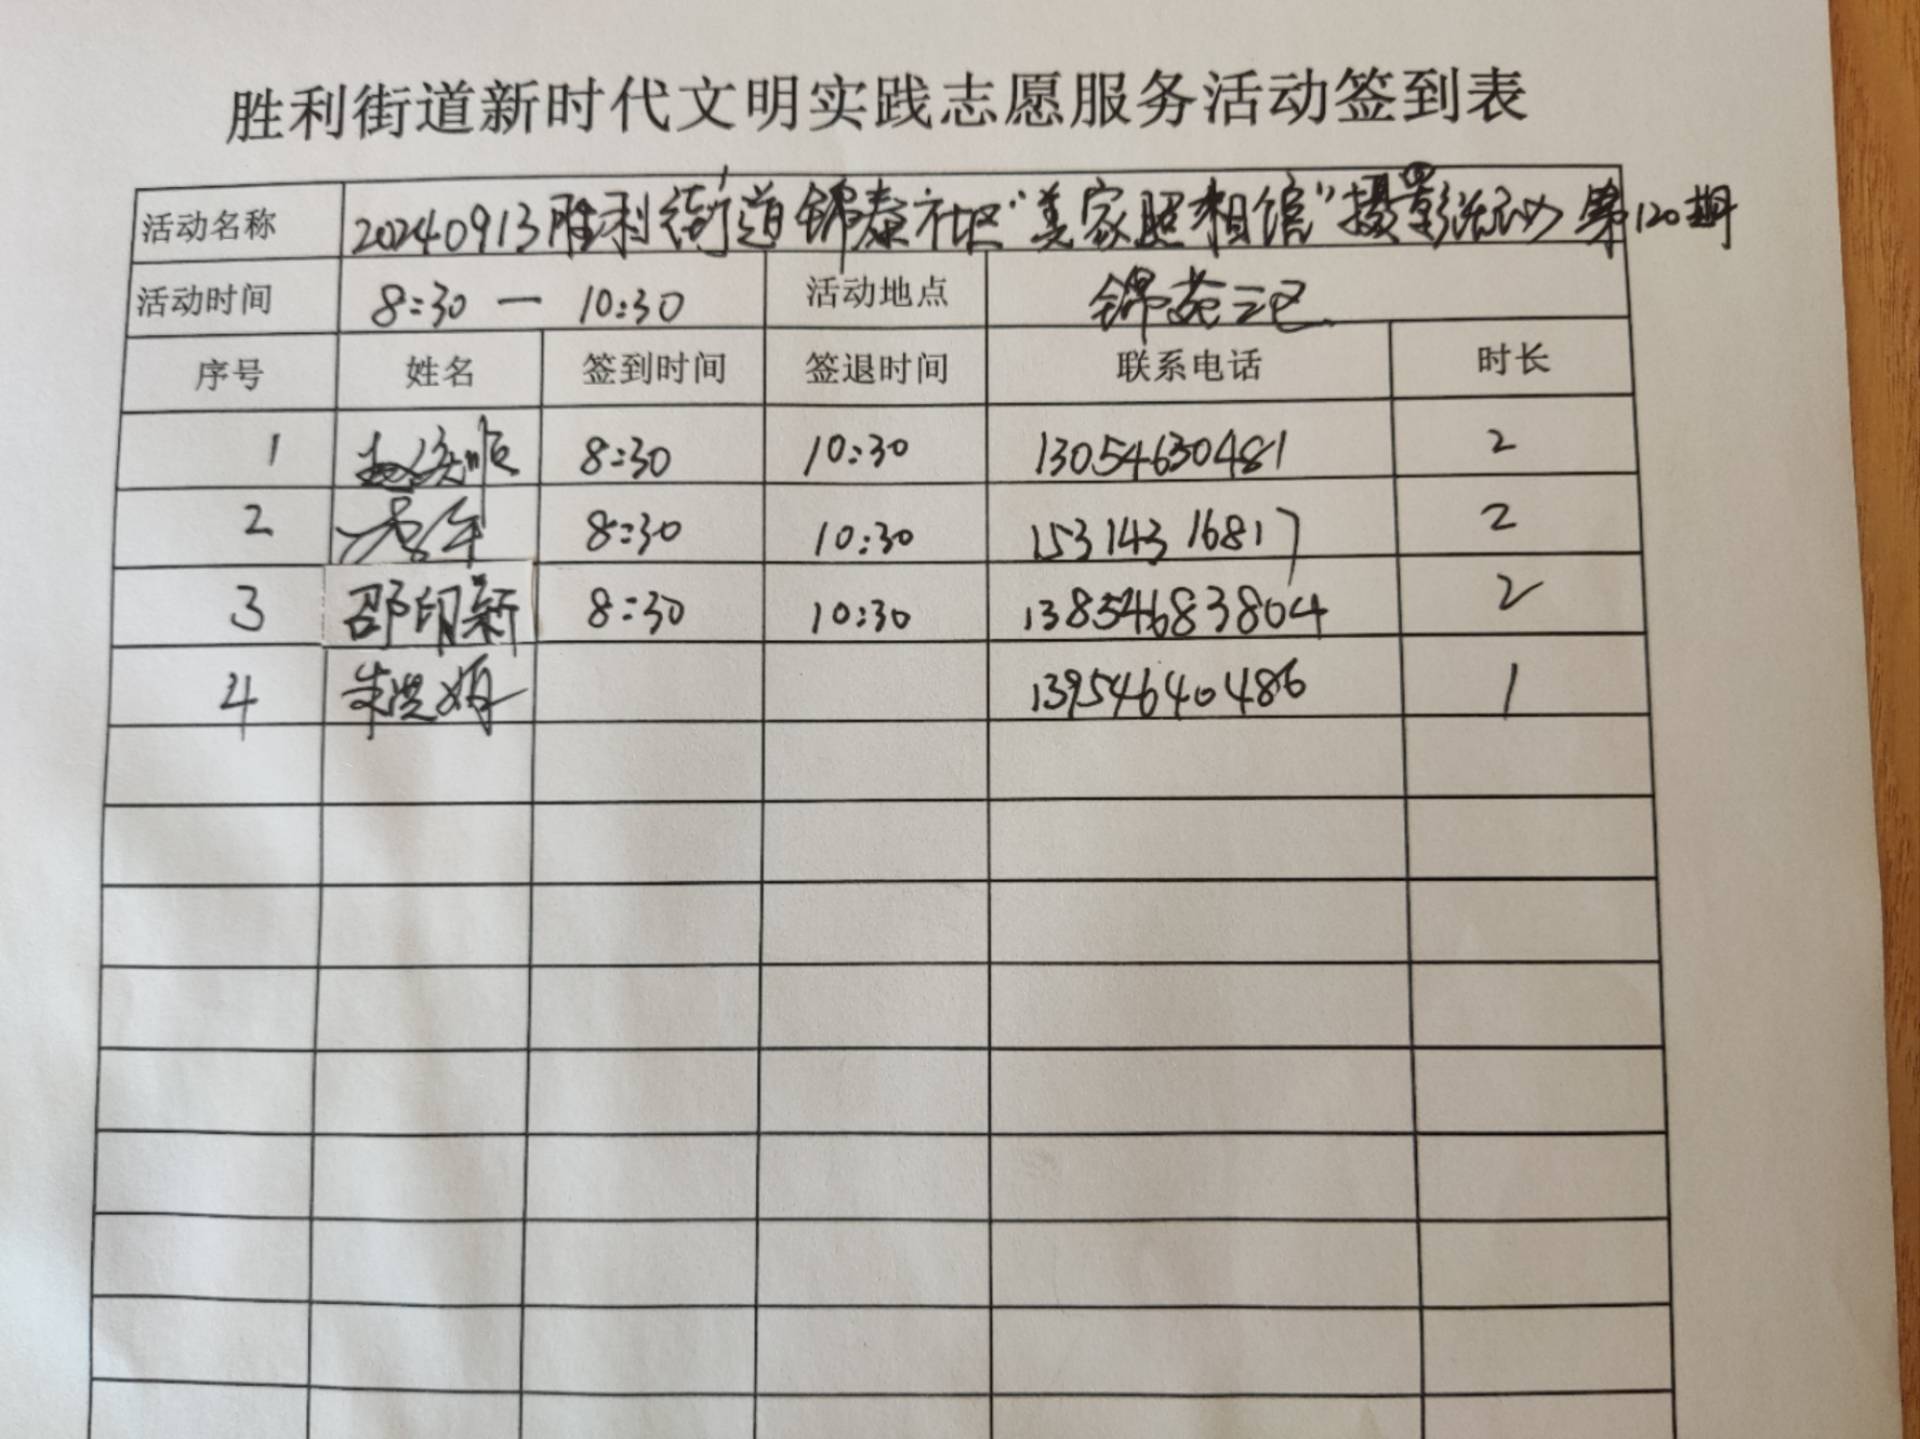 胜利街道新时代文明实践志愿服务活动签到表
活动名称 20240913胜利街道锦泰社区“美家照相馆”摄影活动 第120期
活动时间 8:30 — 10:30 活动地点 锦苑三区
序号 姓名 签到时间 签退时间 联系电话 时长
1 8:30 10:30 13054630481 2
2 8:30 10:30 15314316817 2
3 邵明新 8:30 10:30 13854683804 2
4 朱洪娟 13954640486 1